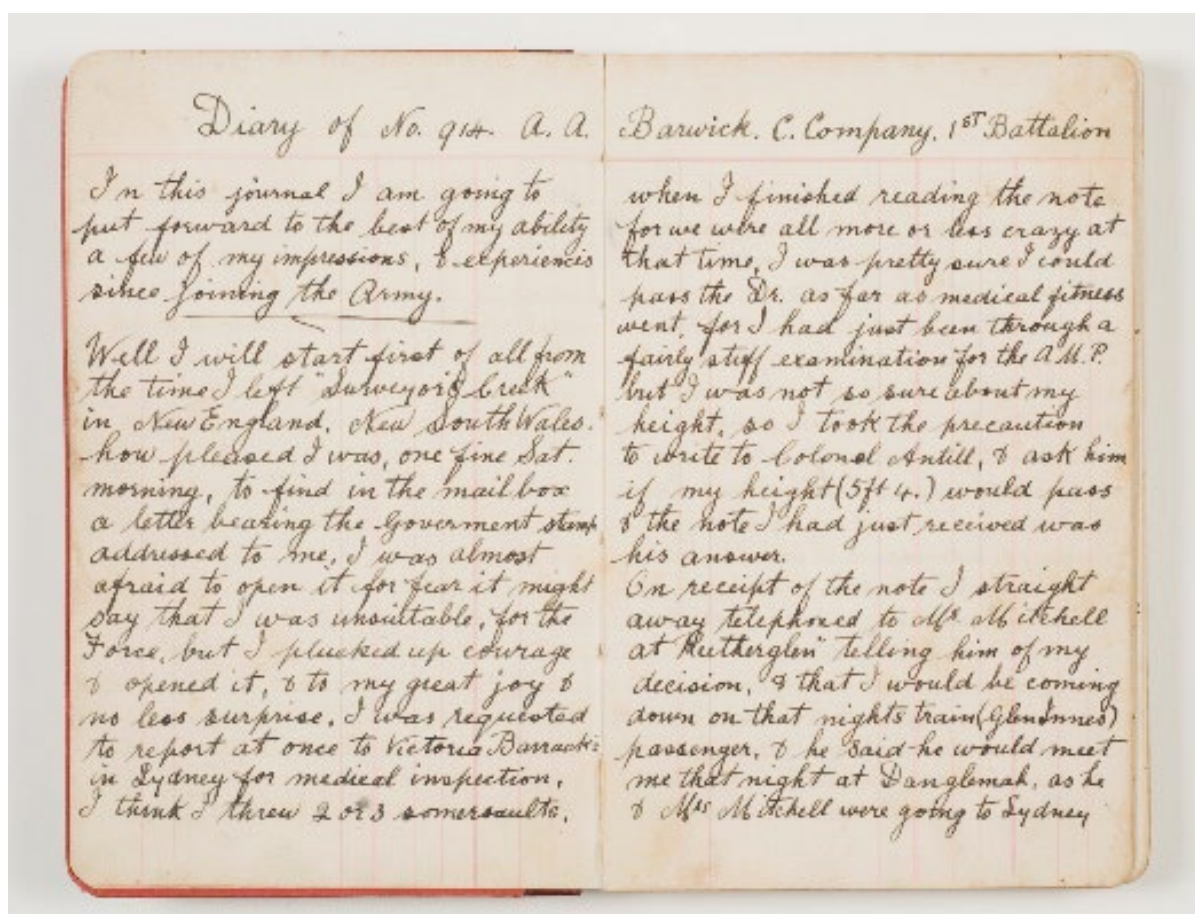 Diary of No. 914. A. A. Barwick. C. Company. 1st Battalion
In this journal I am going to
put forward to the best of my ability
a few of my impressions, & experiences
since joining the Army.
Well I will start first of all from
the time I left "Surveyor's Creek"
in New England. New South Wales.
how pleased I was, one fine Sat.
morning, to find in the mail box
a letter bearing the Goverment stamp
addressed to me, I was almost
afraid to open it for fear it might
say that I was unsuitable, for the
Force, but I plucked up courage
& opened it, & to my great joy &
no less surprise. I was requested
to report at once to Victoria Barracks
in Sydney for medical inspection,
I think I threw 2 or 3 somersaults,
when I finished reading the note
for we were all more or less crazy at
that time, I was pretty sure I could
pass the Dr. as far as medical fitness
went, for I had just been through a
fairly stiff examination for the A.M.P.
but I was not so sure about my
height, so I took the precaution
to write to Colonel Antill, & ask him
if my height (5ft 4.) would pass
& the note I had just received was
his answer.
On receipt of the note I straight
away telephoned to Mr. Mitchell
at "Rutherglen" telling him of my
decision, & that I would be coming
down on that nights train (Glen Innes)
passenger, & he said he would meet
me that night at Danglemah, as he
& Mrs Mitchell were going to Sydney